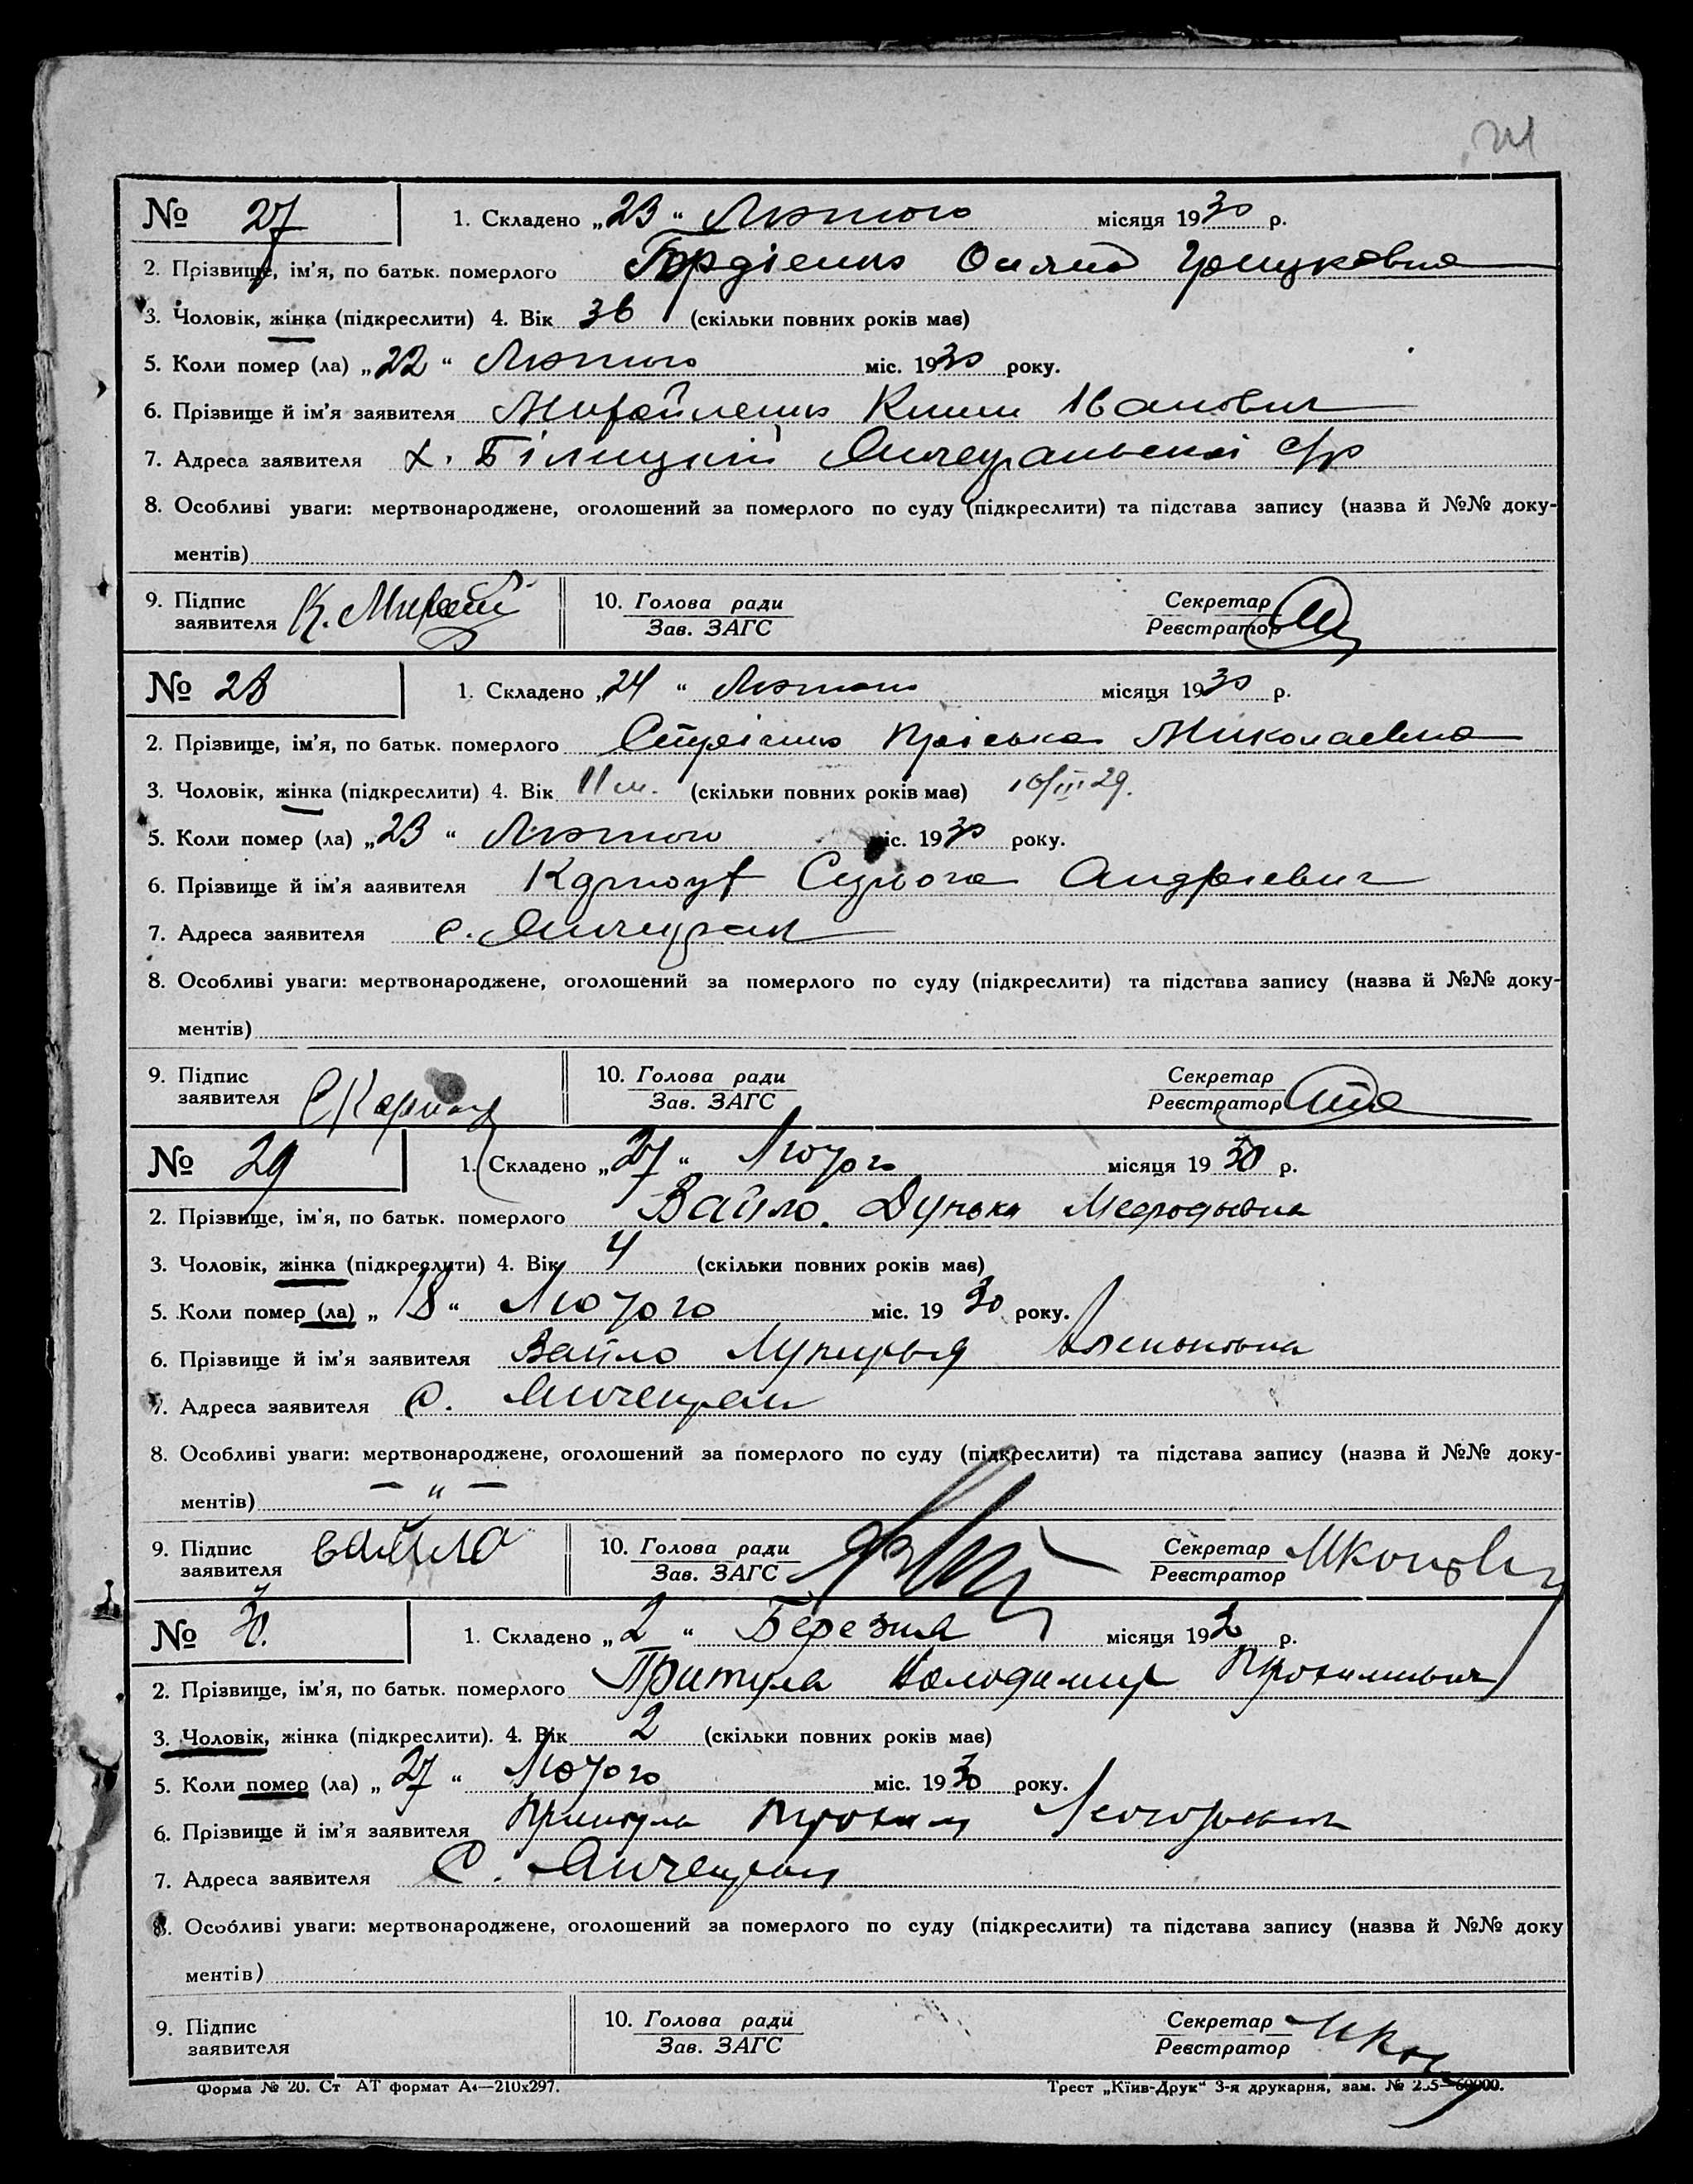 № 27 1. Складено „23“ Лютого місяця 1930 р.
2. Прізвище, ім'я, по батьк. померлого Гордієнко
3. Чоловік, жінка (підкреслити) 4. Вік 36 (скільки повних років має)
5. Коли помер (ла) „22“ Лютого міс. 1930 року.
6. Прізвище й ім'я заявителя Іванович
7. Адреса заявителя х. Білицький с/р
8. Особливі уваги: мертвонароджене, оголошений за померлого по суду (підкреслити) та підстава запису (назва й №№ доку-
ментів)
9. Підпис заявителя 10. Голова ради Секретар
Зав. ЗАГС Реєстратор
№ 28 1. Складено „24“ Лютого місяця 1930 р.
2. Прізвище, ім'я, по батьк. померлого Пріська Миколаевна
3. Чоловік, жінка (підкреслити) 4. Вік 11 м. (скільки повних років має) 10/III 29.
5. Коли помер (ла) „23“ Лютого міс. 1930 року.
6. Прізвище й ім'я заявителя Сергога Андрієвич
7. Адреса заявителя с. Янчекрак
8. Особливі уваги: мертвонароджене, оголошений за померлого по суду (підкреслити) та підстава запису (назва й №№ доку-
ментів)
9. Підпис заявителя 10. Голова ради Секретар
Зав. ЗАГС Реєстратор
№ 29 1. Складено „27“ Лютого місяця 1930 р.
2. Прізвище, ім'я, по батьк. померлого Вайло Дунька
3. Чоловік, жінка (підкреслити) 4. Вік 4 (скільки повних років має)
5. Коли помер (ла) „18“ Лютого міс. 1930 року.
6. Прізвище й ім'я заявителя Вайло
7. Адреса заявителя с. Янчекрак
8. Особливі уваги: мертвонароджене, оголошений за померлого по суду (підкреслити) та підстава запису (назва й №№ доку-
ментів) — „ —
9. Підпис заявителя вайло 10. Голова ради Секретар
Зав. ЗАГС Реєстратор
№ 30. 1. Складено „2“ Березня місяця 1930 р.
2. Прізвище, ім'я, по батьк. померлого Притула Володимир
3. Чоловік, жінка (підкреслити). 4. Вік 2 (скільки повних років має)
5. Коли помер (ла) „27“ Лютого міс. 1930 року.
6. Прізвище й ім'я заявителя Притула
7. Адреса заявителя с. Янчекрак
8. Особливі уваги: мертвонароджене, оголошений за померлого по суду (підкреслити) та підстава запису (назва й №№ доку
ментів)
9. Підпис заявителя 10. Голова ради Секретар
Зав. ЗАГС Реєстратор
Форма № 20. Ст АТ формат А4—210х297. Трест „Київ-Друк“ 3-я друкарня, зам. №